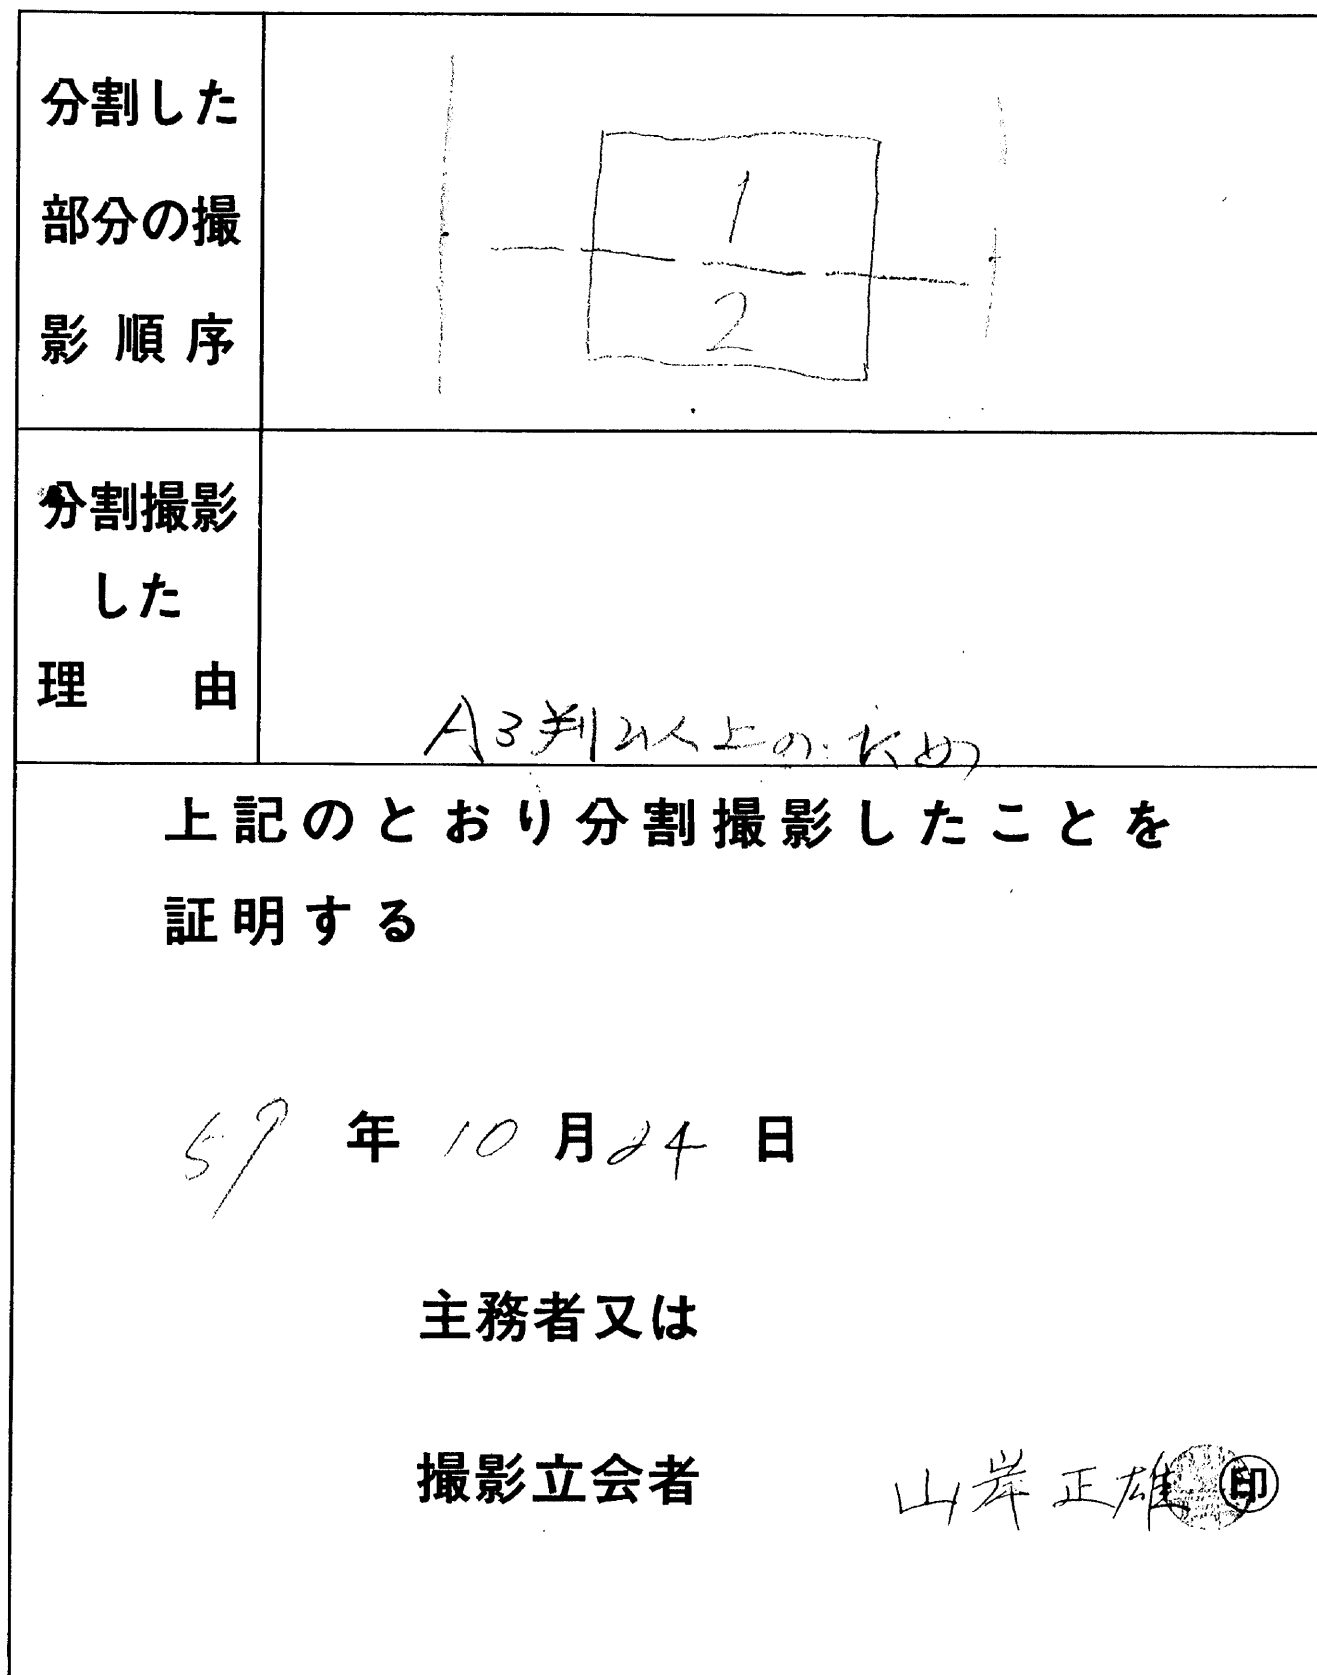 分割した
部分の撮
影順序
1
2
分割撮影
した
理由
A3判以上のため
上記のとおり分割撮影したことを
証明する
59年10月24日
主務者又は
撮影立会者 山岸正雄 印